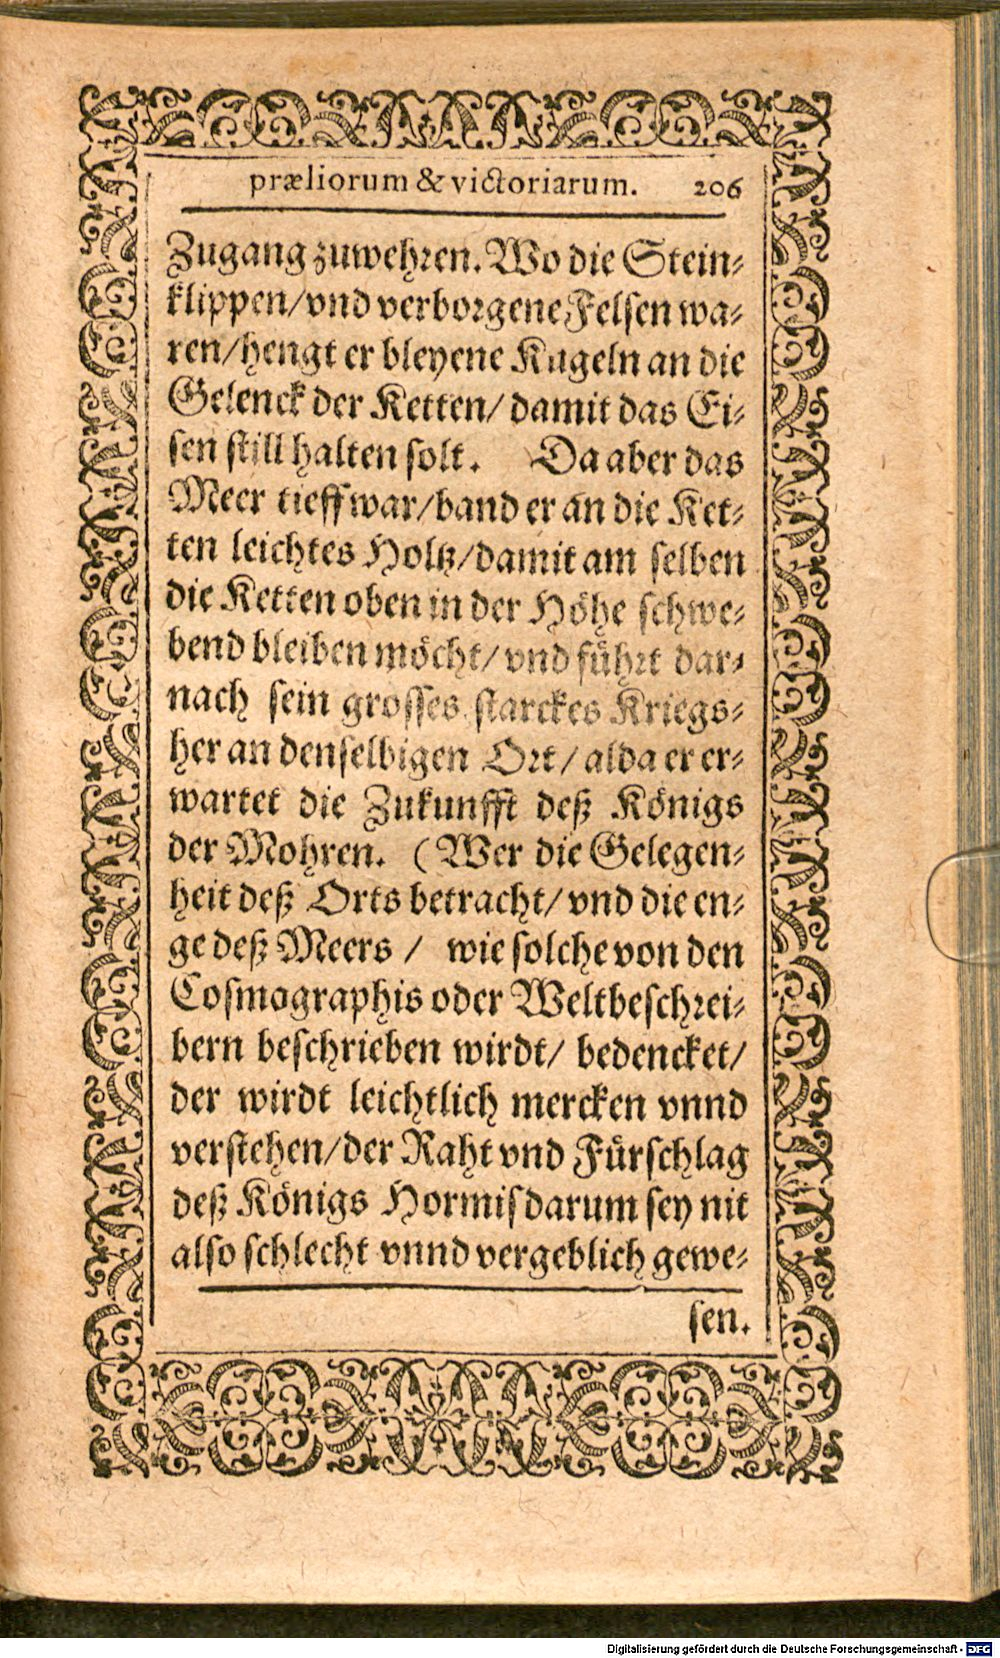 præliorum & victoriarum. 206
Zugang zuwehren. Wo die Stein-
klippen/ vnd verborgene Felsen wa-
ren/ hengt er bleyene Kugeln an die
Gelenck der Ketten/ damit das Ei-
sen still halten solt. Da aber das
Meer tieff war/ band er an die Ket-
ten leichtes Holtz/ damit am selben
die Ketten oben in der Höhe schwe-
bend bleiben möcht/ vnd führt dar-
nach sein grosses starckes Kriegs-
her an denselbigen Ort / alda er er-
wartet die Zukunfft deß Königs
der Mohren. (Wer die Gelegen-
heit deß Orts betracht/ vnd die en-
ge deß Meers / wie solche von den
Cosmographis oder Weltbeschrei-
bern beschrieben wirdt/ bedencket/
der wirdt leichtlich mercken vnnd
verstehen/ der Raht vnd Fürschlag
deß Königs Hormisdarum sey nit
also schlecht vnnd vergeblich gewe-
sen.
Digitalisierung gefördert durch die Deutsche Forschungsgemeinschaft - DFG